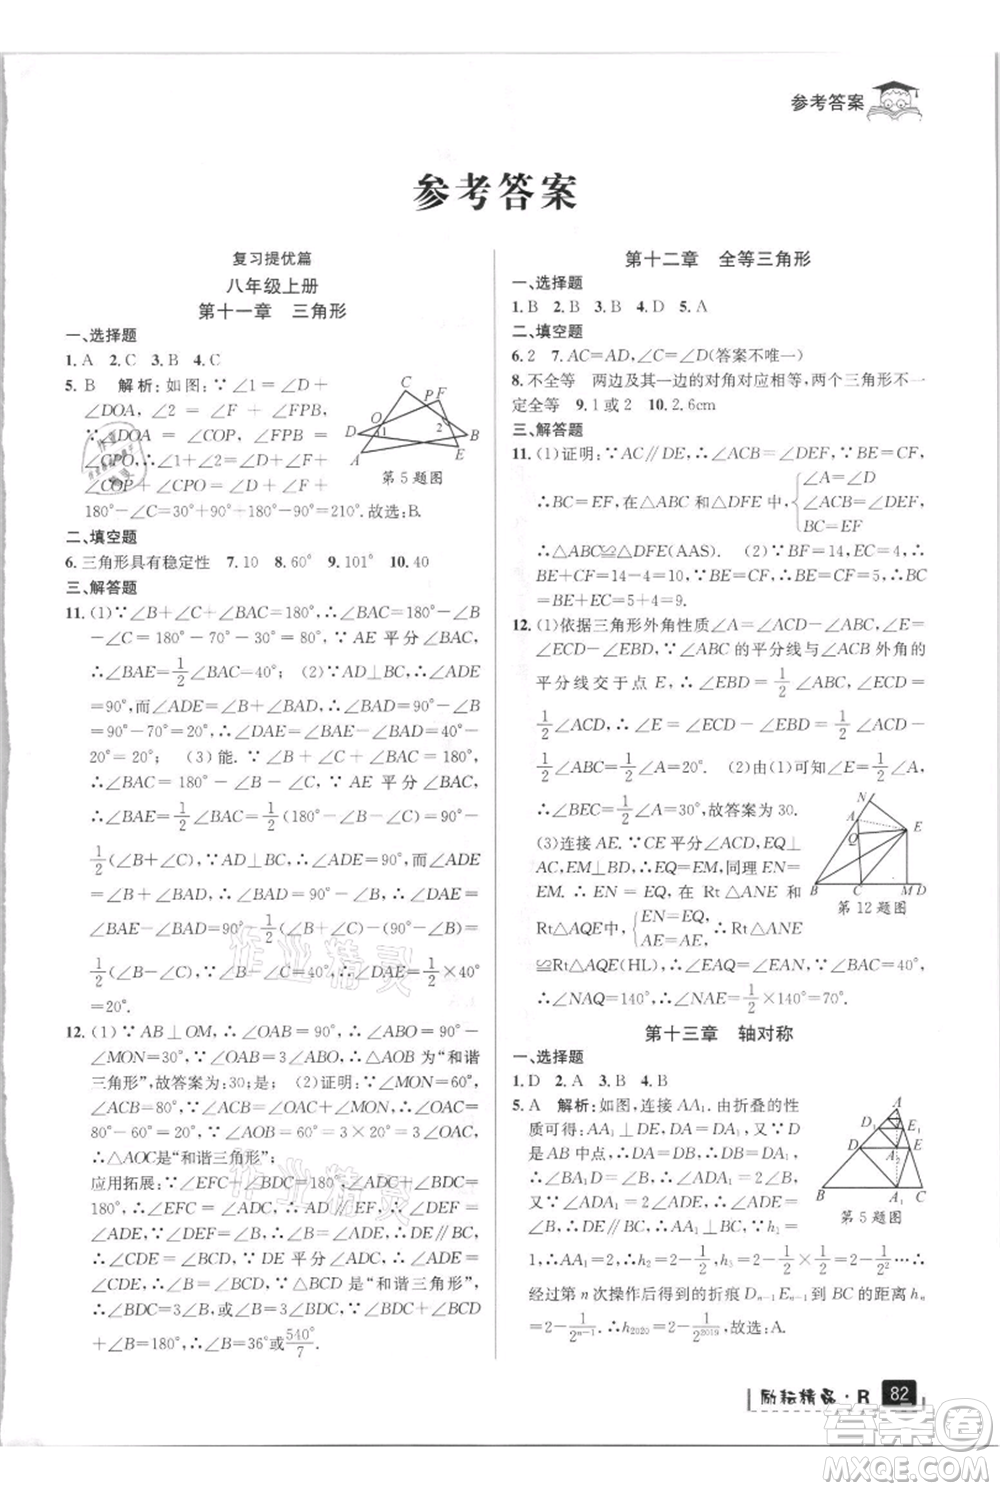 参考答案
参考答案
复习提优篇
八年级上册
第十一章 三角形
一、选择题
1. A 2. C 3. B 4. C
5. B 解析:如图:∵∠1=∠D+
∠DOA,∠2=∠F+∠FPB,
∵∠DOA=∠COP,∠FPB=
∠CPO,∴∠1+∠2=∠D+
∠COP+∠F+∠CPO=∠D+∠F+
180°-∠C=30°+90°+180°-90°=210°.故选:B.
C P F O 1 2 D B A E
第5题图
二、填空题
6.三角形具有稳定性 7.10 8.60° 9.101° 10.40
三、解答题
11.(1)∵∠B+∠C+∠BAC=180°,∴∠BAC=180°-∠B
-∠C=180°-70°-30°=80°;∵AE平分∠BAC,
∴∠BAE=1/2∠BAC=40°;(2)∵AD⊥BC,∴∠ADE
=90°,而∠ADE=∠B+∠BAD,∴∠BAD=90°-∠B
=90°-70°=20°,∴∠DAE=∠BAE-∠BAD=40°-
20°=20°;(3)能.∵∠B+∠C+∠BAC=180°,
∴∠BAC=180°-∠B-∠C,∵AE平分∠BAC,
∴∠BAE=1/2∠BAC=1/2(180°-∠B-∠C)=90°-
1/2(∠B+∠C),∵AD⊥BC,∴∠ADE=90°,而∠ADE
=∠B+∠BAD,∴∠BAD=90°-∠B,∴∠DAE=
∠BAE-∠BAD=90°-1/2(∠B+∠C)-(90°-∠B)=
1/2(∠B-∠C),∵∠B-∠C=40°,∴∠DAE=1/2×40°
=20°.
12.(1)∵AB⊥OM,∴∠OAB=90°,∴∠ABO=90°-
∠MON=30°,∵∠OAB=3∠ABO,∴△AOB为“和谐
三角形”,故答案为:30;是;(2)证明:∵∠MON=60°,
∠ACB=80°,∵∠ACB=∠OAC+∠MON,∴∠OAC
=80°-60°=20°,∵∠AOB=60°=3×20°=3∠OAC,
∴△AOC是“和谐三角形”;
应用拓展:∵∠EFC+∠BDC=180°,∠ADC+∠BDC=
180°,∴∠EFC=∠ADC,∴AD∥EF,∴∠DEF=
∠ADE,∵∠DEF=∠B,∴∠B=∠ADE,∴DE∥BC,
∴∠CDE=∠BCD,∵DE平分∠ADC,∴∠ADE=
∠CDE,∴∠B=∠BCD,∵△BCD是“和谐三角形”,
∴∠BDC=3∠B,或∠B=3∠BDC,∵∠BDC+∠BCD
+∠B=180°,∴∠B=36°或∠B=540°/7.
第十二章 全等三角形
一、选择题
1. B 2. B 3. B 4. D 5. A
二、填空题
6.2 7.AC=AD,∠C=∠D(答案不唯一)
8.不全等 两边及其一边的对角对应相等,两个三角形不一
定全等 9.1或2 10.2.6cm
三、解答题
11.(1)证明:∵AC∥DE,∴∠ACB=∠DEF,∵BF=EC,
∴BC=EF,在△ABC和△DFE中{∠A=∠D ∠ACB=∠DEF, BC=EF
∴△ABC≌△DFE(AAS). (2)∵BF=14,EC=4,
∴BE+CF=14-4=10,∵BE=CF,∴BE=CF=5,
∴BC=5+4=9.
12.(1)依据三角形外角性质∠A=∠ACD-∠ABC,∠E=
∠ECD-∠EBD,∵∠ABC的平分线与∠ACB外角的
平分线交于点E,∴∠EBD=1/2∠ABC,∠ECD=
1/2∠ACD,∴∠E=∠ECD-∠EBD=1/2∠ACD-
1/2∠ABC=1/2∠A=20°. (2)由(1)可知∠E=1/2∠A,
∴∠BEC=1/2∠A=30°,故答案为30.
(3)连接AE.∵CE平分∠ACD,EN⊥
AC,EM⊥BD,∴EN=EM,同理EN=
EM.∴EN=EQ,在Rt△ANE和
Rt△AQE中{EN=EQ AE=AE,∴Rt△ANE
≌Rt△AQE(HL),∴∠NAE=∠QAE,∵∠BAC=40°,
∴∠NAQ=140°,∴∠EAC=1/2∠NAQ=1/2×140°=70°.
N A E Q B C M D
第12题图
第十三章 轴对称
一、选择题
1. D 2. A 3. B 4. B
5. A 解析:如图,连接AA₁,由折叠的性
质可得:AA₁⊥DE,DA=DA₁,又∵D
是AB中点,∴DA=DB,∴DB=DA₁,
∴∠BA₁D=∠B,∴∠ADA₁=2∠B,又
∵∠ADA₁=2∠ADE,∴∠ADE=∠B,
∴DE∥BC,∴AA₁⊥BC,∵h₁=
1,∴AA₁=2,∴h₂=2-1/2,h₃=2-1/2×1/2=2-1/2²…∴
经过第n次操作后得到的折痕Dₙ₋₁Eₙ₋₁到BC的距离hₙ
=2-1/2ⁿ⁻¹,∴h₂₀₂₀=2-1/2²⁰¹⁹,故选:A.
A D₁ E₁ D E B A₁ C
第5题图
励耘精品·R 82
作业精灵
作业精灵
答案圈
MXQE.COM